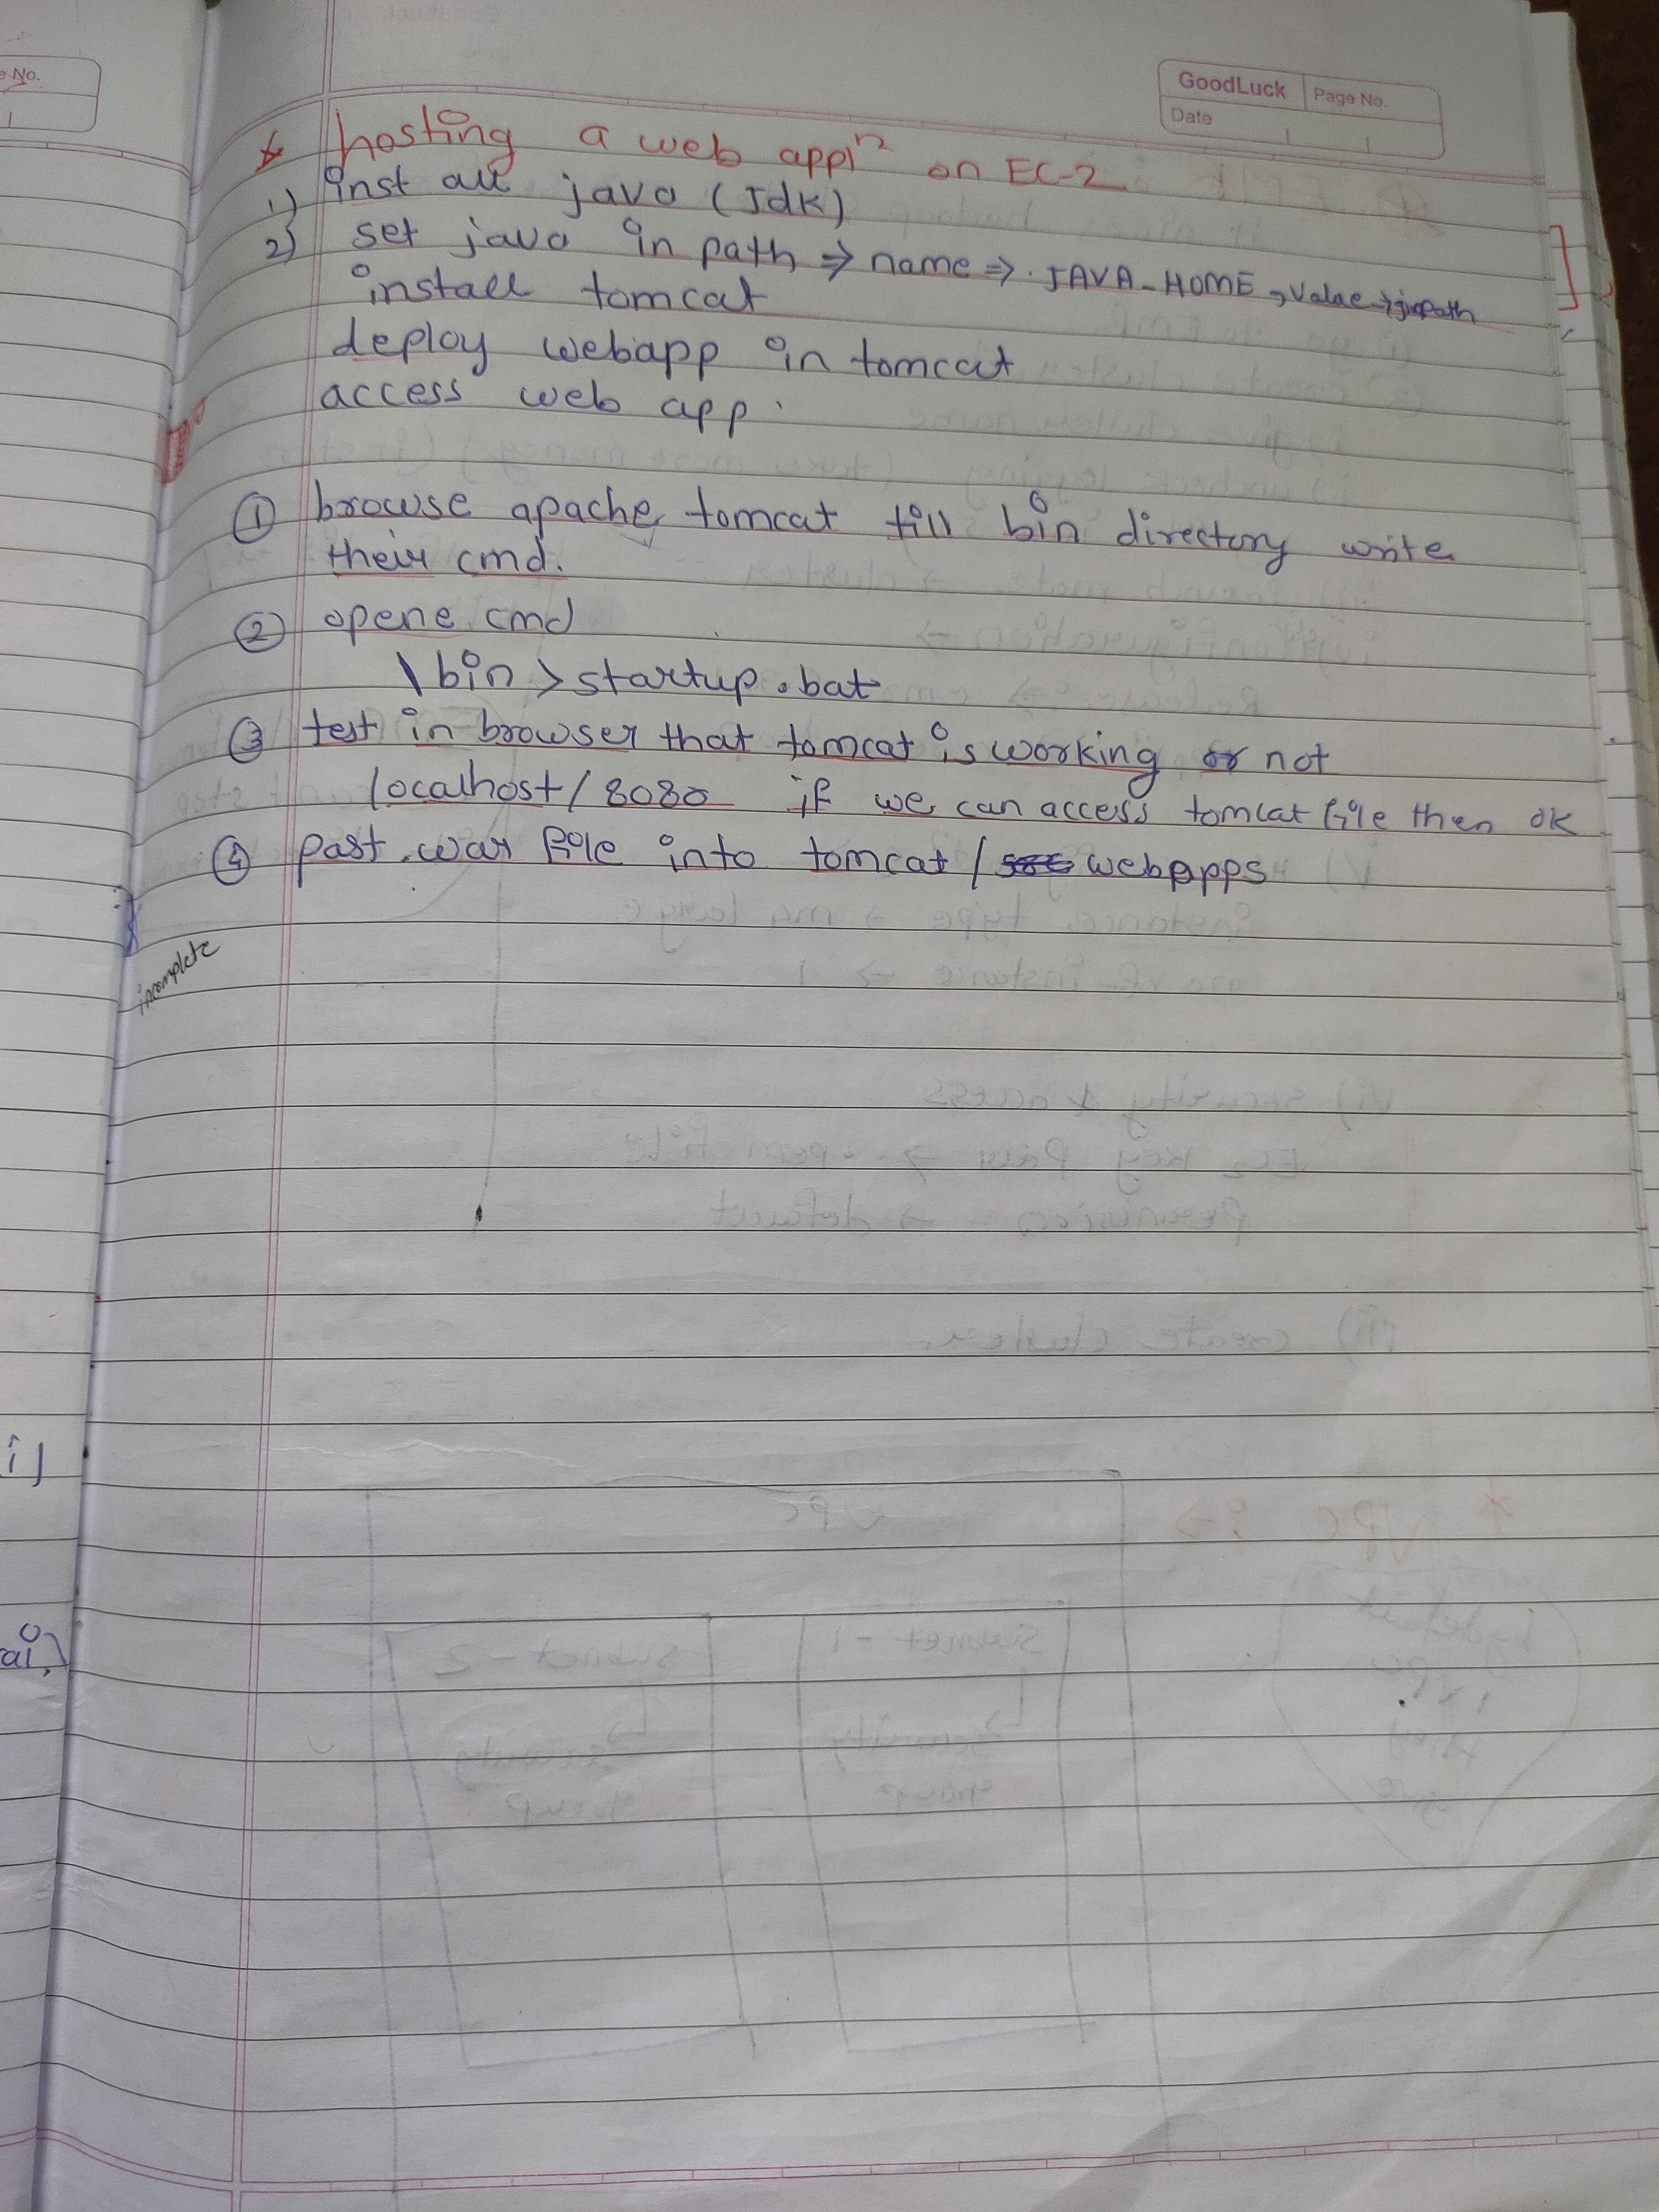 e No.
GoodLuck Page No.
Date
* hosting a web appln on EC-2.
1) inst all java (Jdk)
2) set java in path ⇒ name ⇒ . JAVA_HOME, Value →
install tomcat
deploy webapp in tomcat
access web app.
① browse apache tomcat till bin directory write
their cmd.
② opene cmd
\bin > startup.bat
③ test in browser that tomcat is working or not
localhost/8080 if we can access tomcat file then ok
④ past .war file into tomcat / webapps
incomplete
i)
ai)